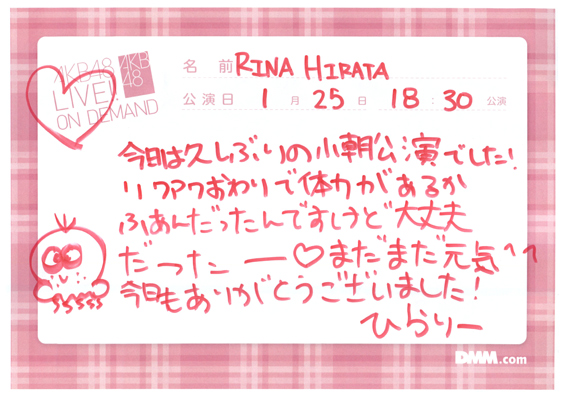 AKB48
LIVE!
ON DEMAND
AKB
48
名 前 RINA HIRATA
公演日 1 月 25 日 18 : 30 公演
今日は久しぶりの小朝公演でした!
リクアワおわりで体力があるか
ふあんだったんですけど大丈夫
だったー♡まだまだ元気^^
今日もありがとうございました!
ひらりー
DMM.com